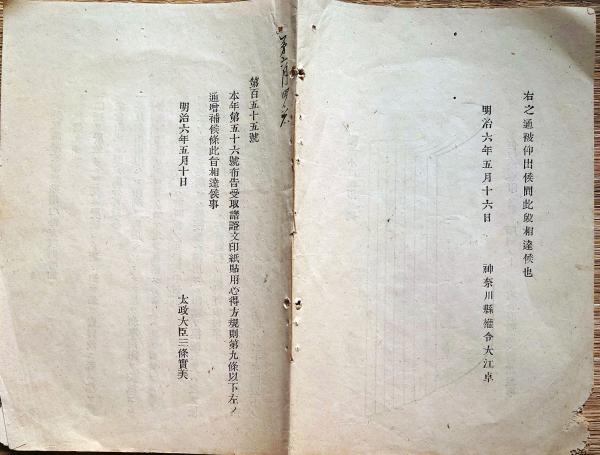 右之通被仰出候間此段相達候也
明治六年五月十六日
神奈川縣權令大江卓
第百五十五號
本年第五十六號布告受取諸證文印紙貼用心得方規則第九條以下左ノ
通增補候條此旨相達候事
明治六年五月十日
太政大臣三條實美